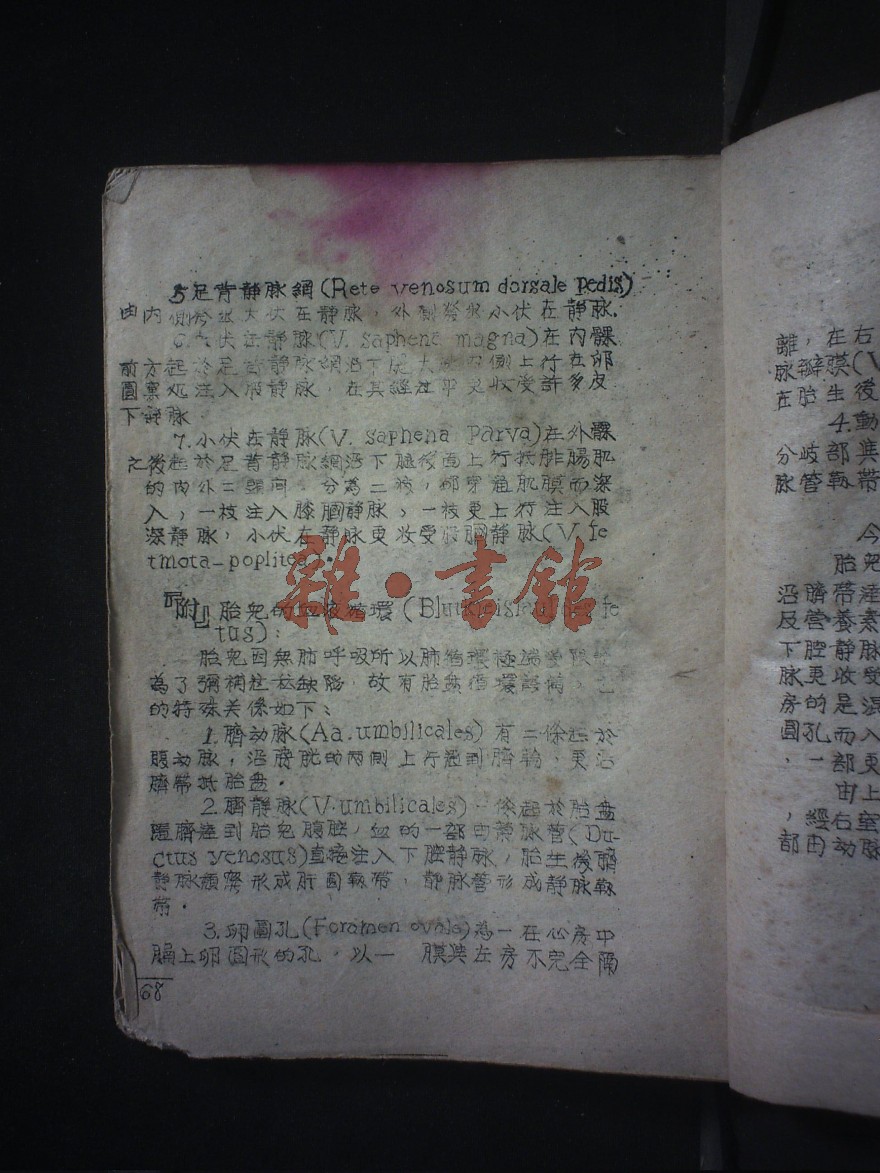 5足背静脉網(Rete venosum dorsale pedis)
由内側發出大伏在静脉，外側發出小伏在静脉.
6.大伏在静脉(V. saphena magna)在内髁
前方起於足背静脉網沿下腿大腿内側上行在卵
圓窩処注入股静脉，在其經过中更收受許多皮
下静脉.
7.小伏在静脉(V. saphena Parva)在外髁
之後起於足背静脉網沿下腿後面上行抵腓腸肌
的内外二頭间，分為二枝，部穿通肌膜而深
入，一枝注入膝膕静脉，一枝更上行注入股
深静脉，小伏在静脉更收受股膕静脉(V. fe
tmota-poplitea).
『附』胎兒的血液循環(
tus):
胎兒因無肺呼吸所以肺循環極端受限
為了彌補这个缺陷，故有胎盘循環
的特殊关係如下:
1.臍动脉(Aa.umbilicales)有二条起於
腹动脉，沿膀胱的两側上行達到臍輪，更沿
臍帶抵胎盘.
2.臍静脉(V.umbilicales)一条起於胎盘
隨臍達到胎兒腹腔，血的一部由静脉管(Du-
ctus venosus)直接注入下腔静脉，胎生後臍
静脉類癈形成肝圓靱帶，静脉管形成静脉靱
帶.
3.卵圓孔(Foramen ovale)為一在心房中
膈上卵圓形的孔，以一 膜與左房不完全隔
68
離，在右
脉瓣膜(V
在胎生後
4.動
分岐部與
脉管靱帶
今
胎兒
沿臍帶達
及营養素
下腔静脉
脉更收受
房的是混
圓孔而入
，一部更
由上
，經右室
部由动脉
雜·書館